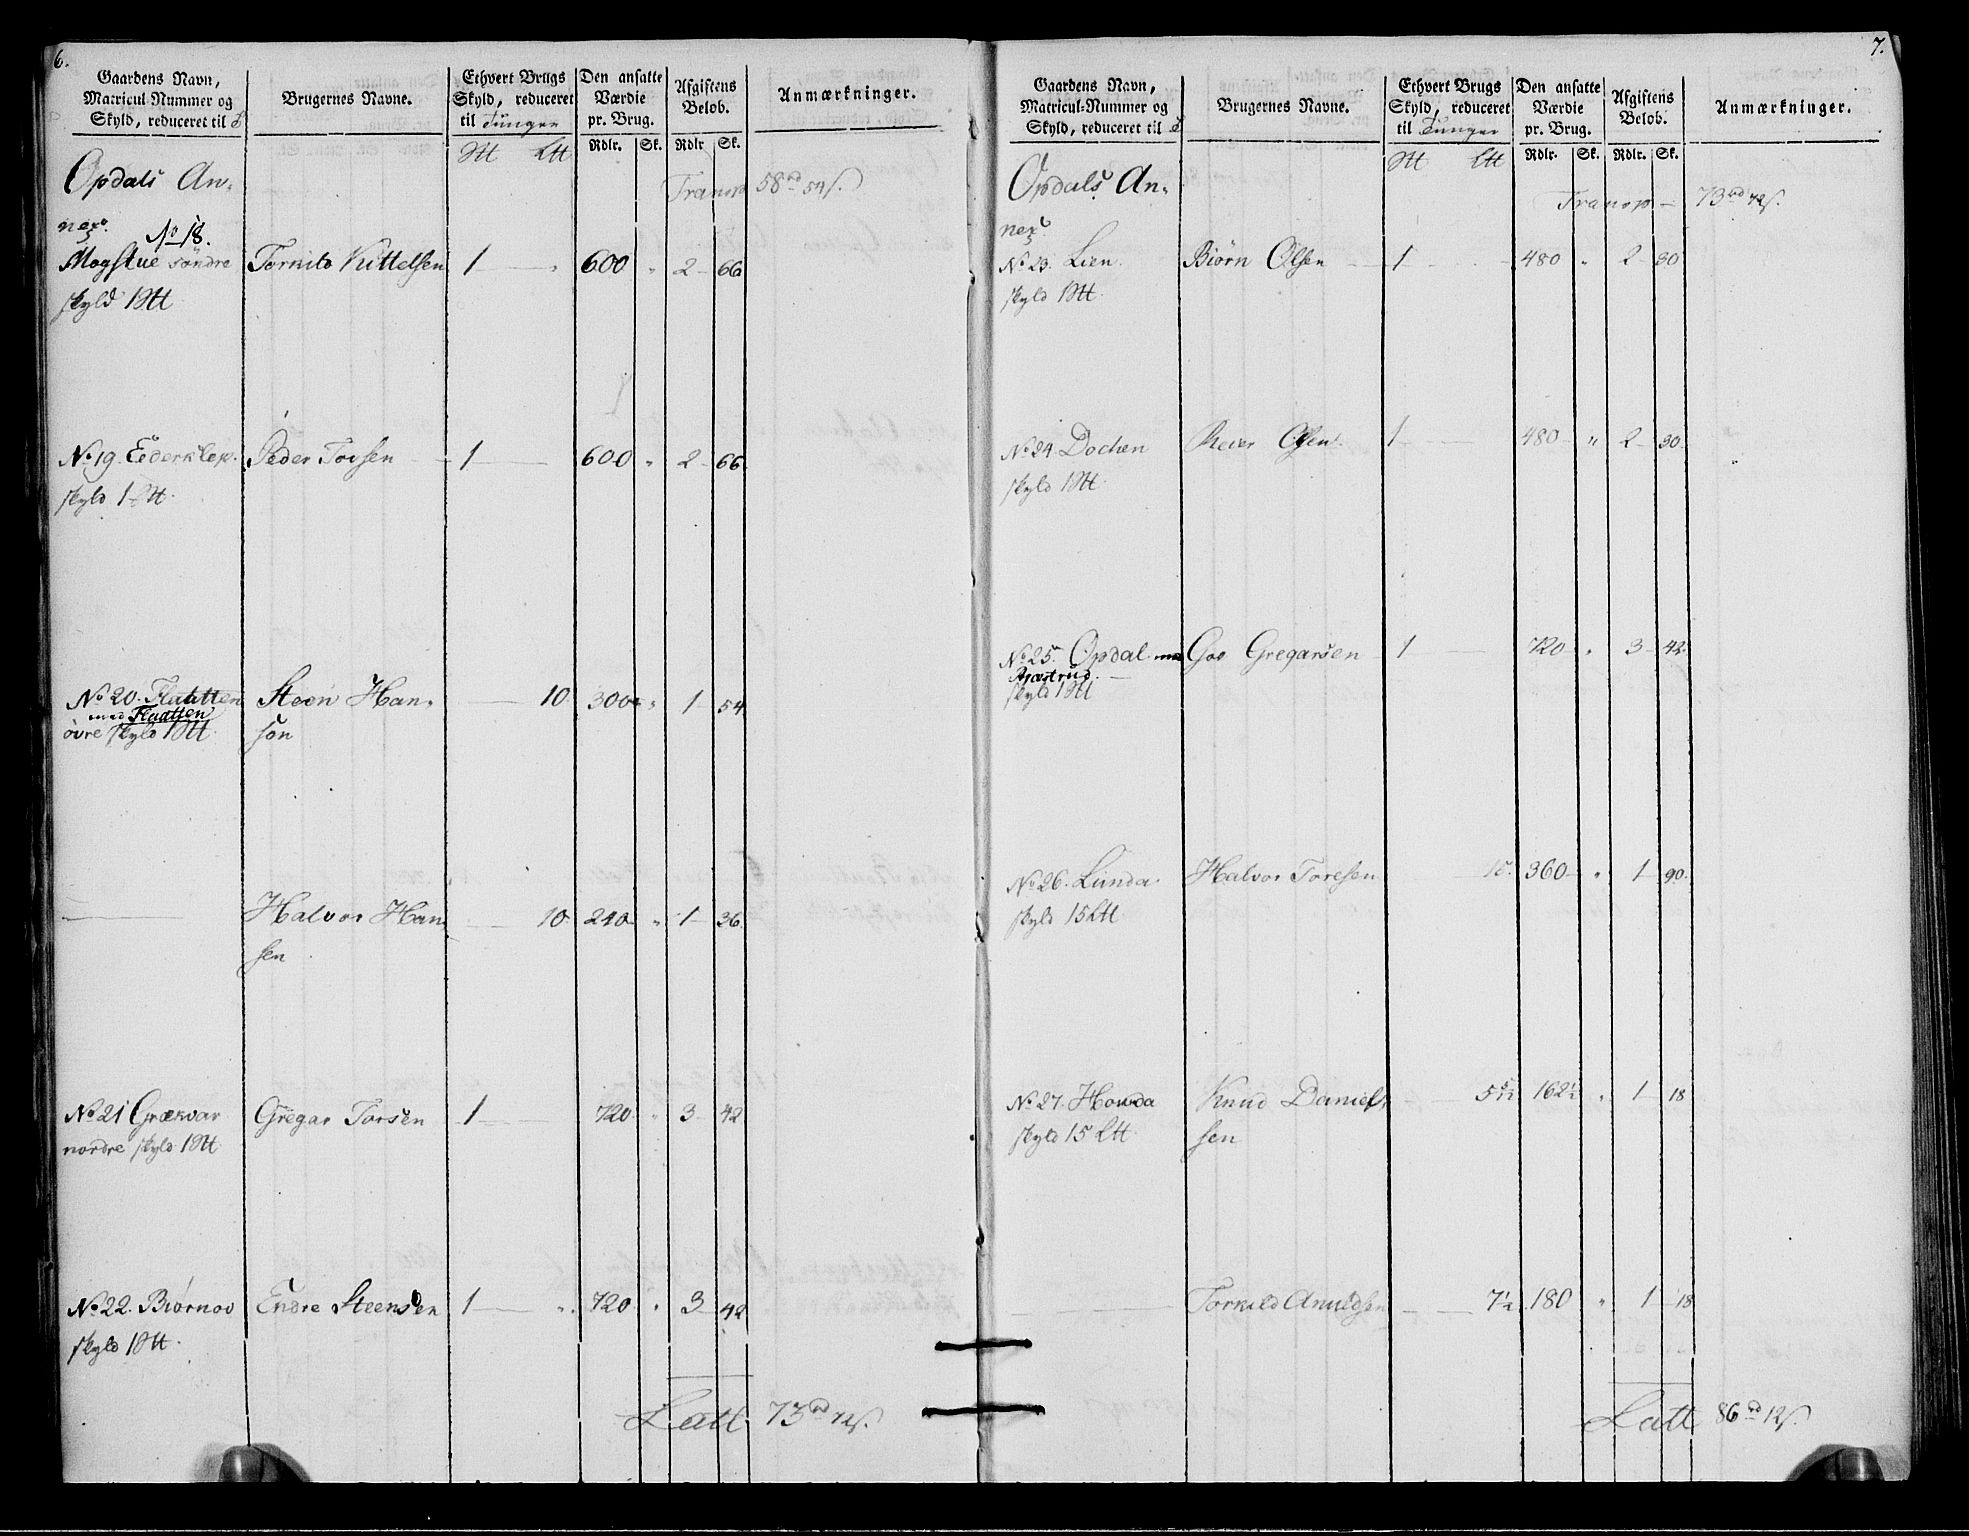 6.
Gaardens Navn, Matricul-Nummer og Skyld, reduceret til
Brugernes Navne.
Ethvert Brugs Skyld, reduceret til Tunger
Den ansatte Værdie pr. Brug.
Afgiftens Beløb.
Anmærkninger.
Rdlr. Sk. Rdlr Sk.
Opdals An-
nex.
Transp 58 rd 54 s.
No 18.
Mogstue søndre Torkild Kittelsen 1 " 600 " 2 66
skyld 1
No 19. Eiderklep. Peder Torsen 1 600 " 2 66
skyld 1
No 20. Flaatten Steen Han- 10 300 " 1 54
med Flaatten
øvre skyld 1 søn
Halvor Han 10 240 " 1 36
sen
No 21 Grækvar Gregar Torsen 1 720 " 3 42
nordre skyld 1
No 22. Biørnoo Endre Steensen 1 " 720 " 3 42
skyld 1
Latt 73 rd 72 s.
7.
Gaardens Navn, Matricul-Nummer og Skyld, reduceret til
Brugernes Navne.
Ethvert Brugs Skyld, reduceret til Tunger
Den ansatte Værdie pr. Brug.
Afgiftens Beløb.
Anmærkninger.
Rdlr. Sk. Rdlr. Sk.
Opdals An-
nex
Transp 73 rd 72 s.
No 23. Lien. Biørn Olsen 1 480 " 2 30
skyld 1
No 24 Dochen Olsen 1 480 " 2 30
skyld 1
No 25. Opdal Goe Gregarsen 1 720 " 3 42
skyld 1
No 26. Lunda Halvor Toresen 15 360 " 1 90
skyld 15
No 27. Honda Knud Daniel- 5 162½ " 1 18
skyld 15 sen
Torkild 7½ 180 " 1 18
Latt 86 rd 12 s.